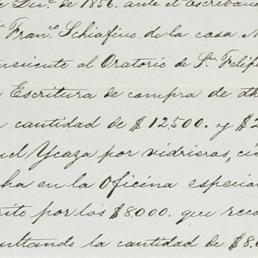 e Dic.e de 1856. ante el escribano
Fran.co Schiafino de la casa N
nsiente al Oratorio de S.n Felip
Escritura de compra de dh
cantidad de $12,500. y $2
uel Ycaza por vidrieras, cu
ha en la Oficina especia
ito por los $8000. que reco
ultando la cantidad de $8.0